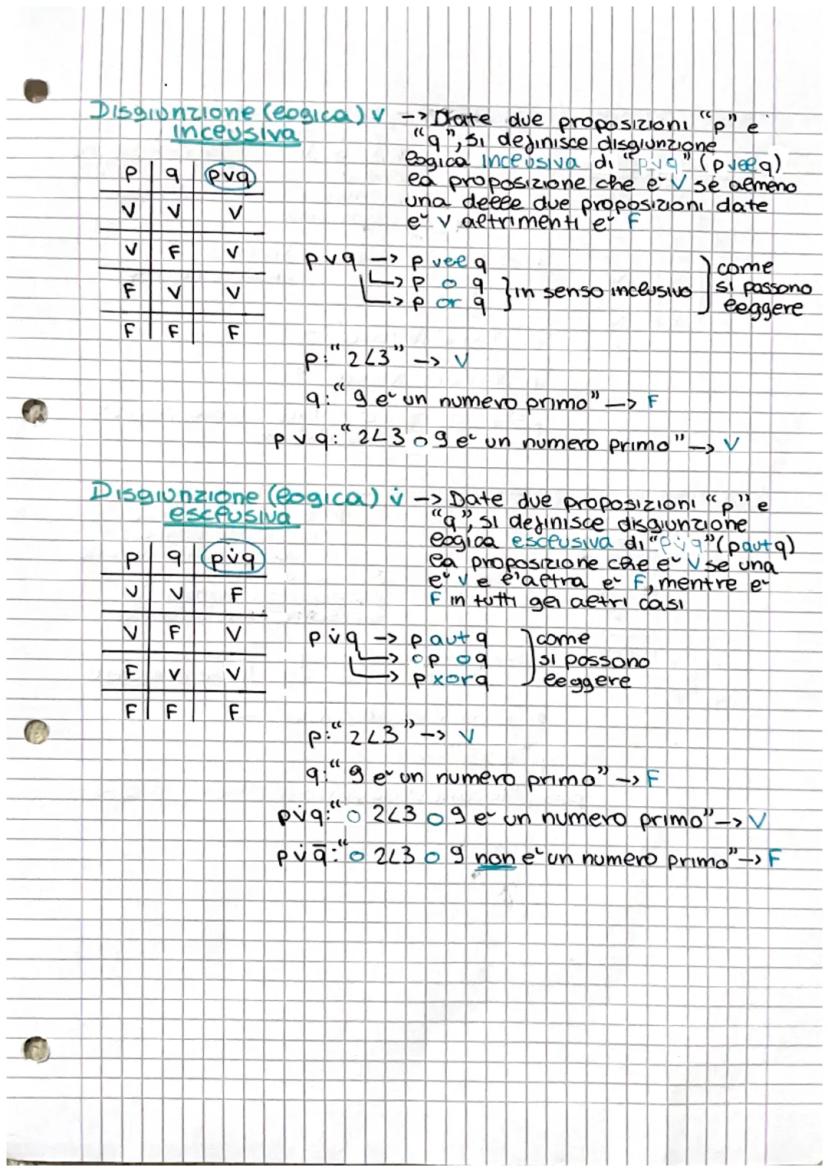 Disgiunzione (logica) v
inclusiva
-> Date due proposizioni "p" e
"q", si definisce disgiunzione
logica inclusiva di "pvq" (p vel q)
la proposizione che è V se almeno
una delle due proposizioni date
è V altrimenti è F
p | q | pvq
V | V | V
V | F | V
F | V | V
F | F | F
pvq -> p vel q
-> p o q
-> p or q
} in senso inclusivo
come
si possono
leggere
p: "2<3" -> V
q: "9 è un numero primo" -> F
p v q: "2<3 o 9 è un numero primo" -> V
Disgiunzione (logica) v̇
esclusiva
-> Date due proposizioni "p" e
"q", si definisce disgiunzione
logica esclusiva di "pv̇q" (p aut q)
la proposizione che è V se una
è V e l'altra è F, mentre è
F in tutti gli altri casi
p | q | pv̇q
V | V | F
V | F | V
F | V | V
F | F | F
pv̇q -> p aut q
-> o p o q
-> p xor q
come
si possono
leggere
p: "2<3" -> V
q: "9 è un numero primo" -> F
pv̇q: "o 2<3 o 9 è un numero primo" -> V
pv̇q̄: "o 2<3 o 9 non è un numero primo" -> F